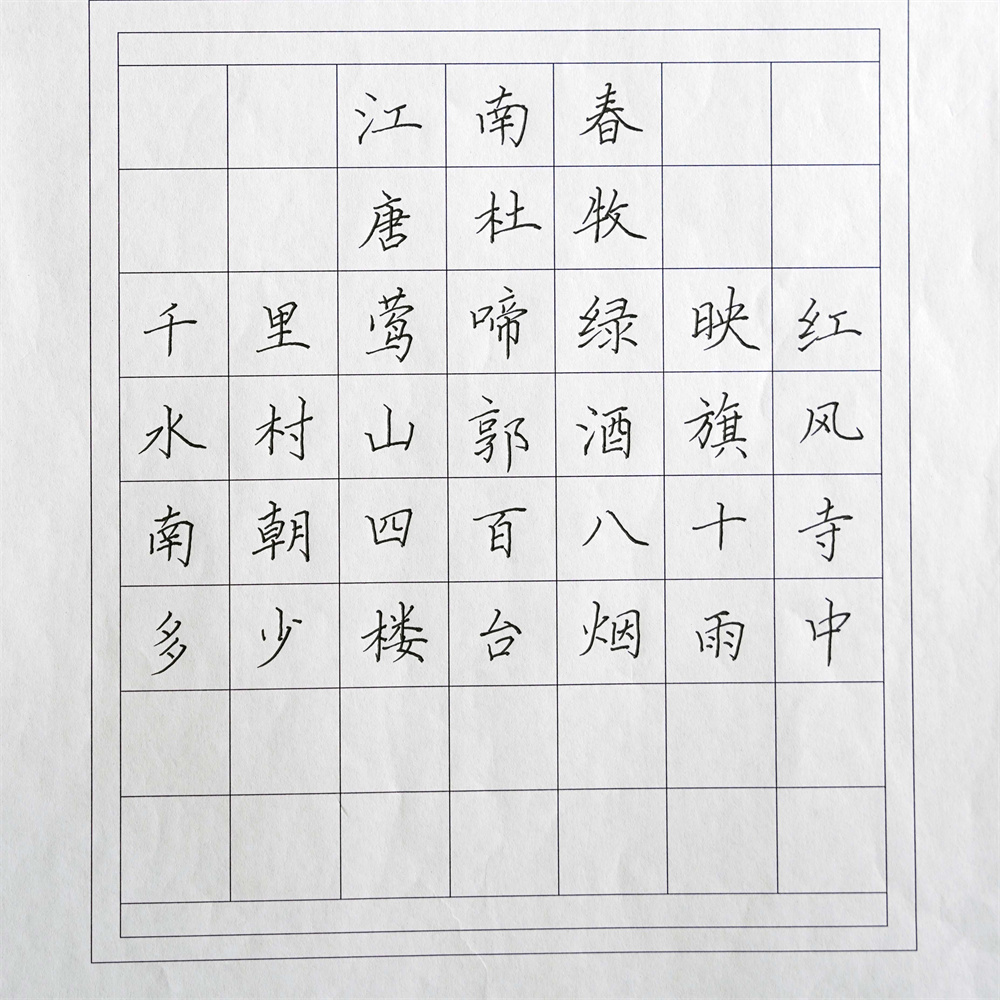 江南春
唐杜牧
千里莺啼绿映红
水村山郭酒旗风
南朝四百八十寺
多少楼台烟雨中